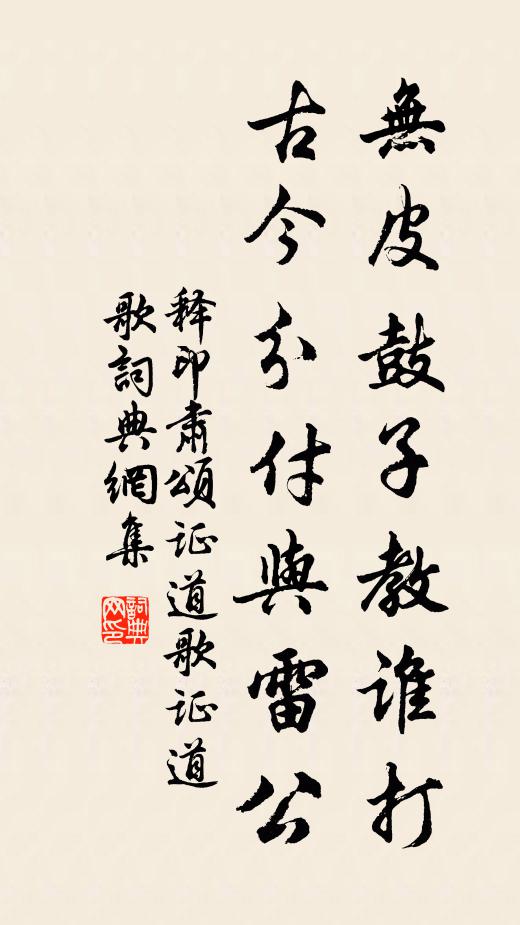 無皮鼓子教誰打
古今分付與雷公
释印肃頌证道歌证道
歌詞典網集
詞典
网印